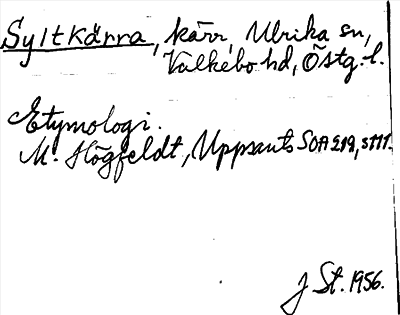 Syltkärra, kärr, Ulrika sn,
Valkebo hd, Östg. l.
Etymologi.
M. Högfeldt, Uppsats SOA 219, s111.
J St. 1956.